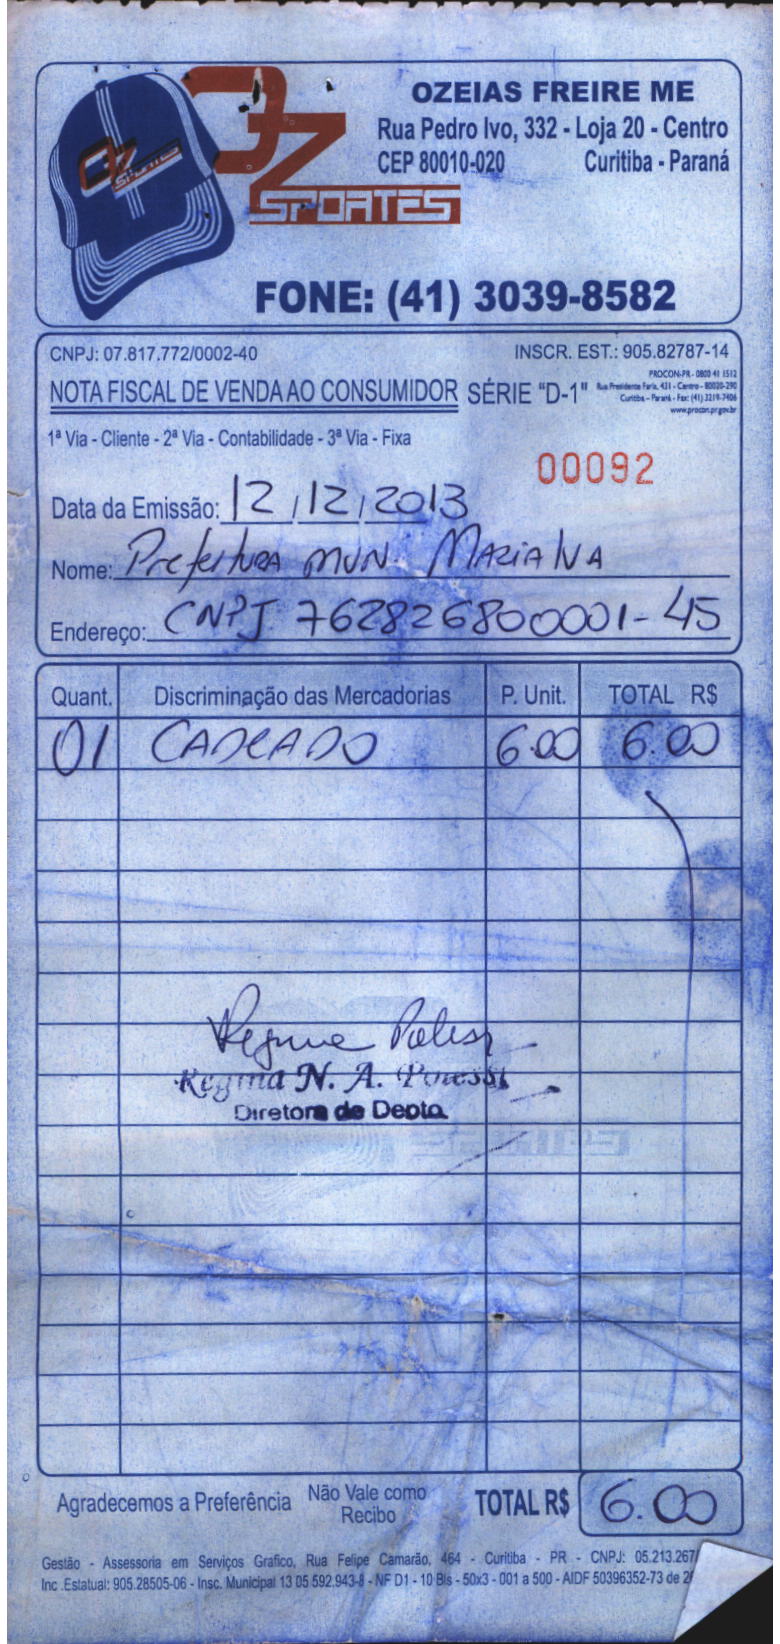 OZ
SPORTES
OZ
SPORTES
OZEIAS FREIRE ME
Rua Pedro Ivo, 332 - Loja 20 - Centro
CEP 80010-020 Curitiba - Paraná
FONE: (41) 3039-8582
CNPJ: 07.817.772/0002-40 INSCR. EST.: 905.82787-14
NOTA FISCAL DE VENDA AO CONSUMIDOR SÉRIE "D-1"
PROCON-PR - 0800 41 1512
Rua Presidente Faria, 431 - Centro - 80020-290
Curitiba - Paraná - Fax: (41) 3219-7406
www.procon.pr.gov.br
1ª Via - Cliente - 2ª Via - Contabilidade - 3ª Via - Fixa
00092
Data da Emissão: 12/12/2013
Nome: Prefeitura MUN. MARIALVA
Endereço: CNPJ 762826800001-45
Quant. Discriminação das Mercadorias P. Unit. TOTAL R$
01 CADEADO 6.00 6.00
Regina Polessi
Regina N. A. Polessi
Diretora de Depto.
Agradecemos a Preferência Não Vale como Recibo TOTAL R$ 6.00
Gestão - Assessoria em Serviços Grafico, Rua Felipe Camarão, 464 - Curitiba - PR - CNPJ: 05.213.267/
Inc .Estatual: 905.28505-06 - Insc. Municipal 13 05 592.943-8 - NF D1 - 10 Bls - 50x3 - 001 a 500 - AIDF 50396352-73 de